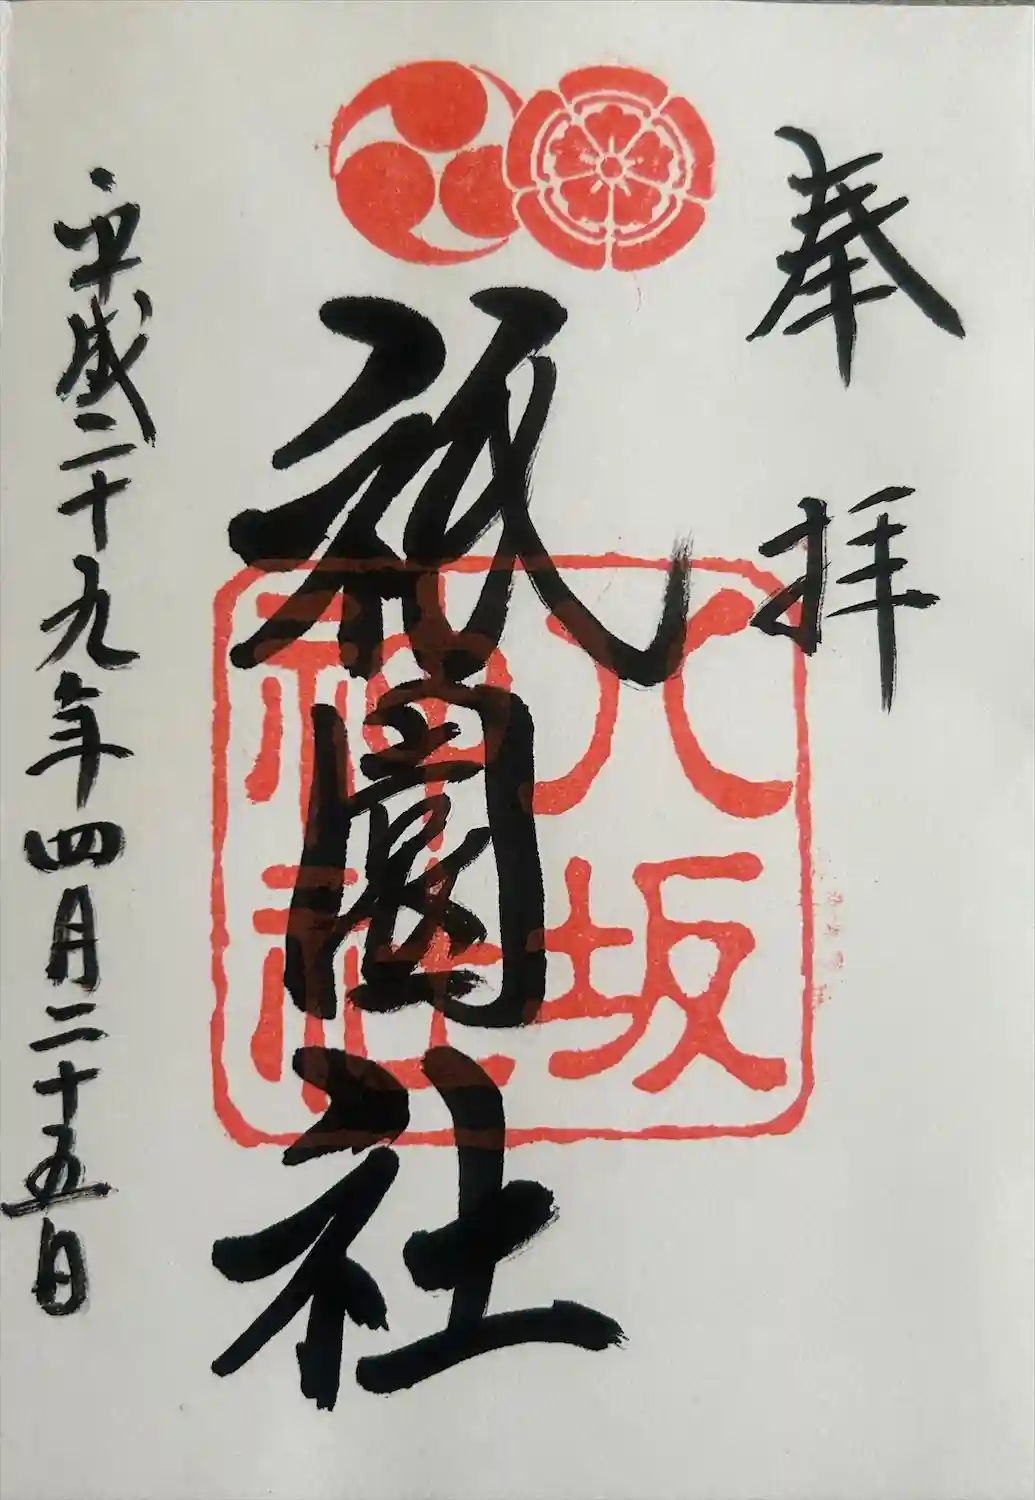 奉拝
八坂
神社
祇園社
平成二十九年四月二十五日